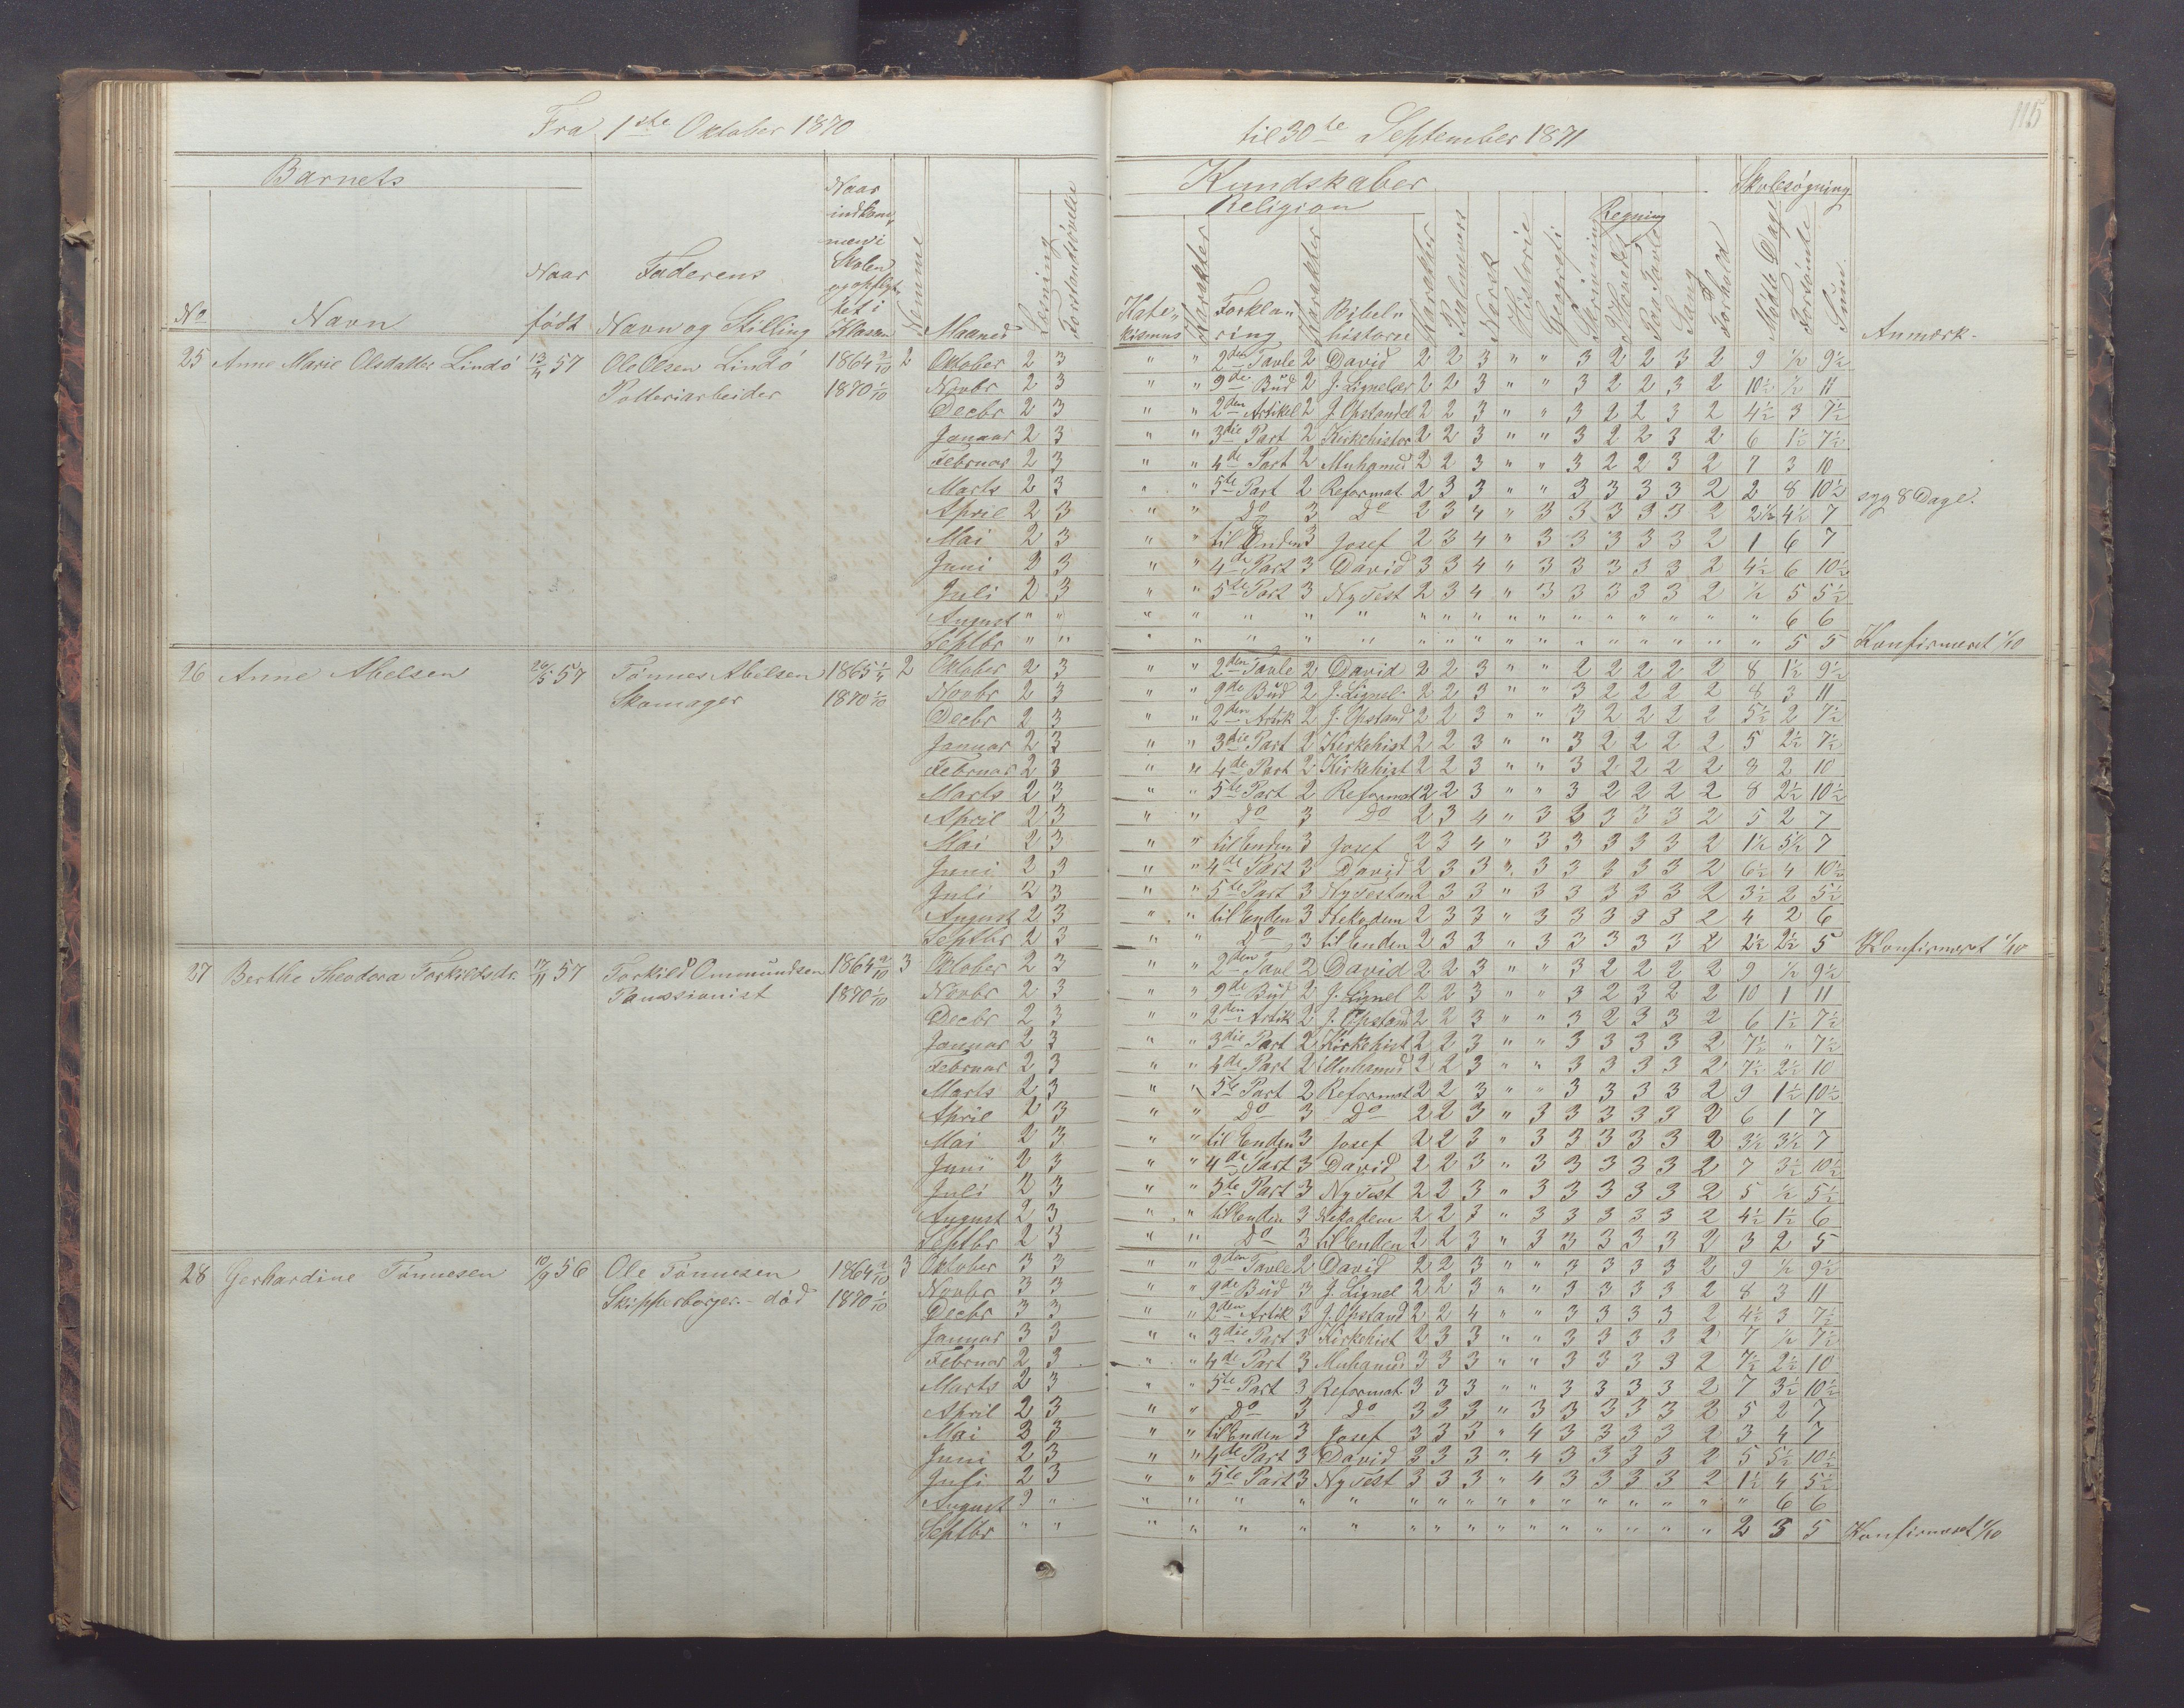 115
Fra 1ste Oktober 1870 til 30te September 1871
Barnets
Kundskaber
Skolesøgning
Religion
Regning
No
Navn
Naar født
Faderens Navn og Stilling
Naar indkommen i Skolen og opflyttet i Klassen
Nemme
Maaned
Læsning
Forstandsøvelse
Katekismus
Karakter
Forklaring
Karakter
Bibelhistorie
Karakter
Psalmevers
Norsk
Historie
Geografi
Skrivning
I Hovedet
Paa Tavle
Sang
Forhold
Mødte Dage
Forsømte
Sum.
Anmærk.
25 Anne Marie Olsdatter Lindø 13/4 57 Ole Olsen Lindø 1864 2/10 2 Oktober 2 3 " " 2den Tavle 2 David 2 2 3 " " 3 2 2 3 2 9 1/2 9 1/2
Potteriarbeider 1870 1/10 Novbr 2 3 " " 9de Bud 2 J. Lignelser 2 2 3 " " 3 2 2 3 2 10 1/2 1/2 11
Decbr 2 3 " " 2den Artikel 2 J. Opstandel 2 2 3 " " 3 2 2 3 2 4 1/2 3 7 1/2
Januar 2 3 " " 3die Part 2 Kirkehistor 2 2 3 " " 3 2 2 3 2 6 1 1/2 7 1/2
Februar 2 3 " " 4de Part 2 Muhamed 2 2 3 " " 3 2 2 3 2 7 3 10
Marts 2 3 " " 5te Part 2 Reformat. 2 3 3 " " 3 3 3 3 2 2 8 10 1/2 syg 8 Dage.
April 2 3 " " Do 3 Do 2 3 4 " 3 3 3 3 3 2 2 1/2 4 1/2 7
Mai 2 3 " " til Enden 3 Josef 2 3 4 " 3 3 3 3 3 2 1 6 7
Juni 2 3 " " 4de Part 3 David 3 3 4 " 3 3 3 3 3 2 4 1/2 6 10 1/2
Juli 2 3 " " 5te Part 3 Ny Test 2 3 4 " 3 3 3 3 3 2 1/2 5 5 1/2
August " " " " " " " " " " " " " " " " " " " 6 6
Septbr " " " " " " " " " " " " " " " " " " " 5 5 Konfirmeret 1/10
26 Anne Abelsen 26/5 57 Tønnes Abelsen 1865 1/4 2 Oktober 2 3 " " 2den Tavle 2 David 2 2 3 " " 2 2 2 2 2 8 1 1/2 9 1/2
Skomager 1870 1/10 Novbr 2 3 " " 9de Bud 2 J. Lignel. 2 2 3 " " 3 2 2 2 2 8 3 11
Decbr 2 3 " " 2den Artik 2 J. Opstand 2 2 3 " " 3 2 2 2 2 5 1/2 2 7 1/2
Januar 2 3 " " 3die Part 2 Kirkehist 2 2 3 " " 3 2 2 2 2 5 2 1/2 7 1/2
Februar 2 3 " " 4de Part 2 Kirkehist 2 2 3 " " 3 2 2 2 2 8 2 10
Marts 2 3 " " 5te Part 2 Reformat 2 2 3 " " 3 2 2 2 2 8 2 1/2 10 1/2
April 2 3 " " Do 3 Do 2 3 4 " 3 3 3 3 3 2 5 2 7
Mai 2 3 " " til Enden 3 Josef 2 3 4 " 3 3 3 3 3 2 1 1/2 5 1/2 7
Juni 2 3 " " 4de Part 3 David 2 3 3 " 3 3 3 3 3 2 6 1/2 4 10 1/2
Juli 2 3 " " 5te Part 3 Ny Testam 2 3 3 " 3 3 3 3 3 2 3 1/2 2 5 1/2
August 2 3 " " til Enden 3 2 3 3 " 3 3 3 3 3 2 4 2 6
Septbr 2 3 " " Do 3 til Enden 2 3 3 " 3 3 3 3 3 2 2 1/2 2 1/2 5 Konfirmeret 1/10
27 Berthe Theodora Torkildsdr. 17/11 57 Torkild Ommundsen 1864 2/10 3 Oktober 2 3 " " 2den Tavl 2 David 2 2 3 " " 3 2 2 2 2 9 1/2 9 1/2
Panssionist 1870 1/10 Novbr 2 3 " " 9de Bud 2 J. Lignel 2 2 3 " " 3 2 3 2 2 10 1 11
Decbr 2 3 " " 2den Artik 2 J. Opstand 2 2 3 " " 3 2 3 3 2 6 1 1/2 7 1/2
Januar 2 3 " " 3die Part 2 Kirkehist 2 2 3 " " 3 3 3 3 2 7 1/2 " 7 1/2
Februar 2 3 " " 4de Part 2 Muhamed 2 2 3 " " 3 3 3 3 2 7 1/2 2 1/2 10
Marts 2 3 " " 5te Part 2 Reformat 2 2 3 " " 3 3 3 3 2 9 1 1/2 10 1/2
April 2 3 " " Do 3 Do 2 2 3 " 3 3 3 3 3 2 6 1 7
Mai 2 3 " " til Enden 3 Josef 2 2 3 " 3 3 3 3 3 2 3 1/2 3 1/2 7
Juni 2 3 " " 4de Part 3 David 2 2 3 " 3 3 3 3 3 2 7 3 1/2 10 1/2
Juli 2 3 " " 5te Part 3 Ny Test 2 2 3 " 3 3 3 3 3 2 5 1/2 5 1/2
August 2 3 " " til Enden 3 Nekodem 2 2 3 " 3 3 3 3 3 2 4 1/2 1 1/2 6
Septbr 2 3 " " Do 3 til Enden 2 2 3 " 3 3 3 3 3 2 3 2 5
28 Gerhardine Tønnesen 10/9 56 Ole Tønnesen 1864 2/10 3 Oktober 3 3 " " 2den Tavle 2 David 2 2 3 " " 3 3 3 3 2 9 1/2 9 1/2
Skipperborger - død 1870 1/10 Novbr 3 3 " " 9de Bud 3 J. Lignel 2 2 3 " " 3 3 3 3 2 8 3 11
Decbr 3 3 " " 2den Artik 3 J. Opstand 2 2 4 " " 3 3 3 3 2 4 1/2 3 7 1/2
Januar 3 3 " " 3die Part 3 Kirkehist 2 3 3 " " 3 3 3 3 2 7 1/2 7 1/2
Februar 2 3 " " 4de Part 3 Muhamed 3 3 3 " " 3 3 3 3 2 7 1/2 2 1/2 10
Marts 2 3 " " 5te Part 3 Reformat. 3 3 3 " " 3 3 3 3 2 7 3 1/2 10 1/2
April 2 3 " " Do 3 Do 3 3 3 " 3 3 3 3 3 2 5 2 7
Mai 3 3 " " til Enden 3 Josef 3 3 3 " 4 3 3 3 3 2 3 4 7
Juni 2 3 " " 4de Part 3 David 3 3 3 " 4 3 3 3 3 2 5 5 1/2 10 1/2
Juli 2 3 " " 5te Part 3 Ny Test 3 3 3 " 4 3 3 3 3 2 1 1/2 4 5 1/2
August 3 " " " " " " " " " " " " " " " " " " 6 6
Septbr " " " " " " " " " " " " " " " " " " 2 3 5 Konfirmeret 1/10